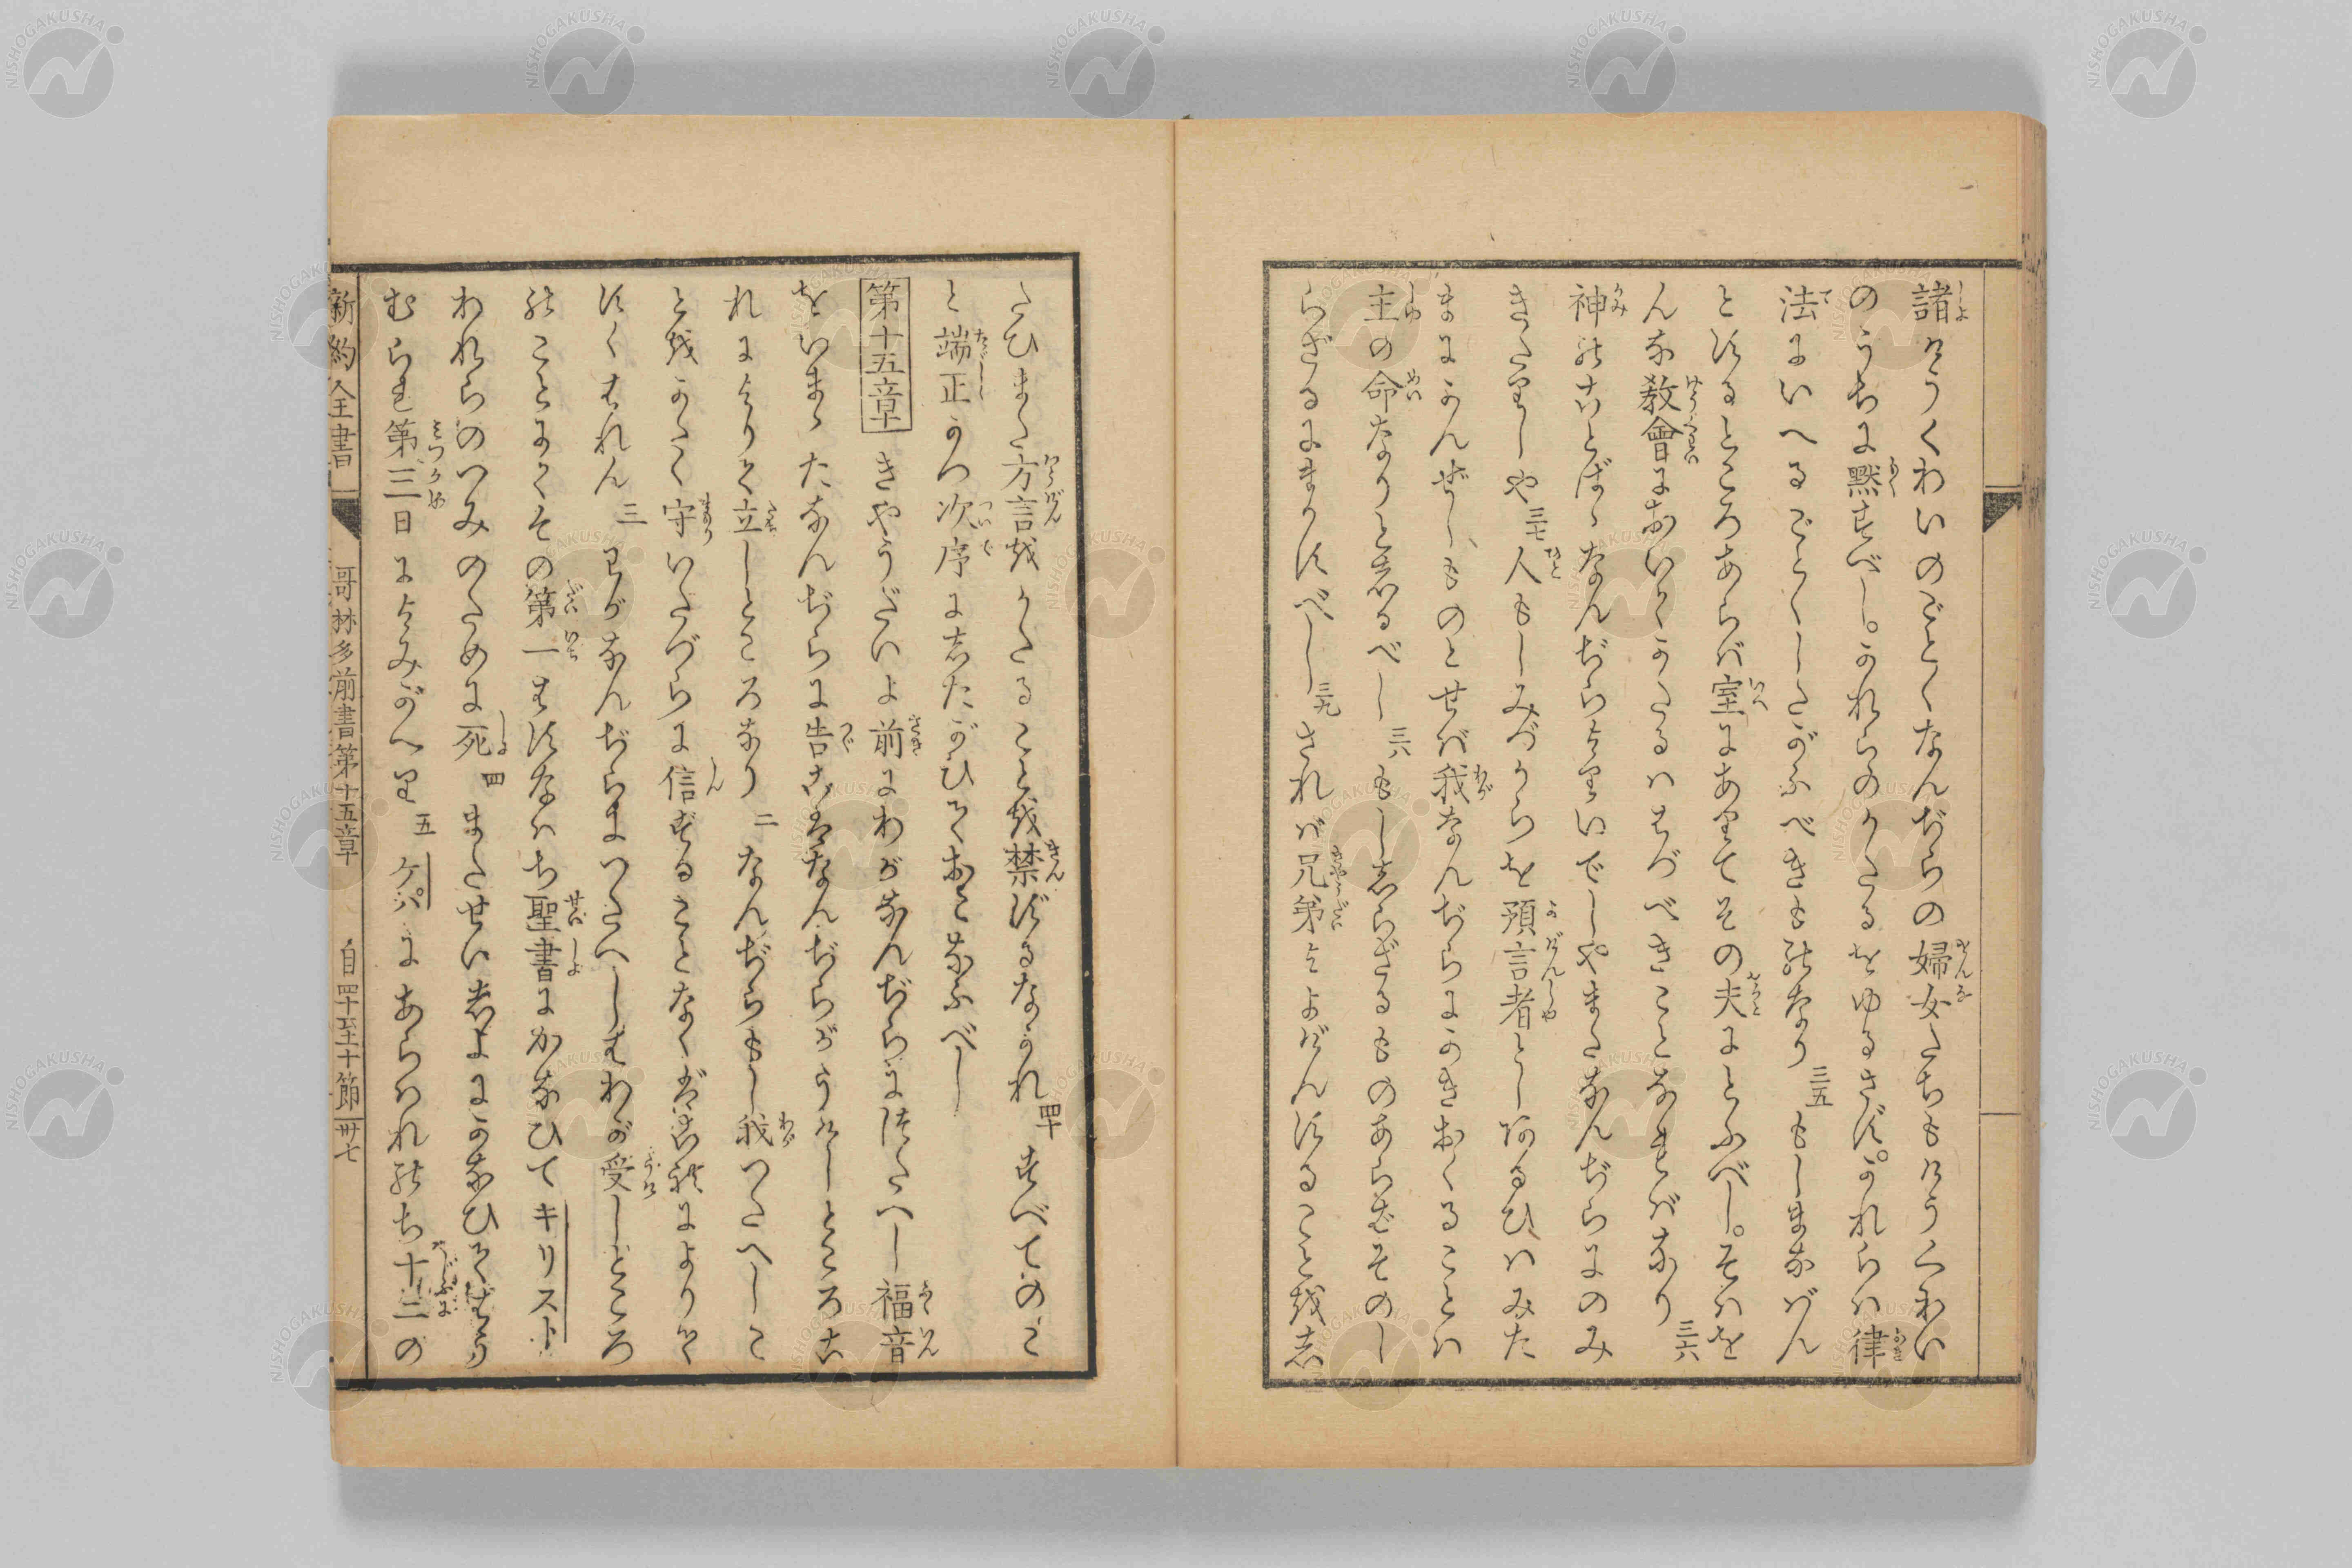 諸けうくわいのごとくなんぢらの婦女たちもけうくわい
のうちに黙すべし。かれらのかたるをゆるさず。かれらは律
法にいへるごとくしたがふべきものなり 三五 もしまなばん
とするところあらば室にありてその夫にとふべし。そはを
んな教會においてかたるははづべきことなればなり 三六
神のことばゝなんぢらよりいでしやまたなんぢらにのみ
きたりしや 三七 人もしみづからを預言者としあるひはみた
まにかんぜしものとせば我なんぢらにかきおくることは
主の命なりとしるべし 三八 もししらざるものあらばそのし
らざるにまかすべし 三九 されば兄弟よよげんすることをし
たひまた方言をかたることを禁ずるなかれ 四十 すべてのこ
と端正かつ次序にしたがひておこなふべし
第十五章 きやうだいよ前にわがなんぢらにつたへし福音
をいまゝたなんぢらに告こはなんぢらがうけしところこ
れによりて立しところなり 二 なんぢらもし我つたへしこ
とをかたく守いたづらに信ずることなくばこれによりて
すくはれん 三 わがなんぢらにつたへしはわが受しところ
のことにてその第一はすなはち聖書にかなひてキリスト
われらのつみのために死 四 またせいしよにかなひてはう
むられ第三日によみがへり 五 ケパにあらはれのち十二の
新約全書 哥林多前書第十五章 自四十至十節 卅七
NISHOGAKUSHA